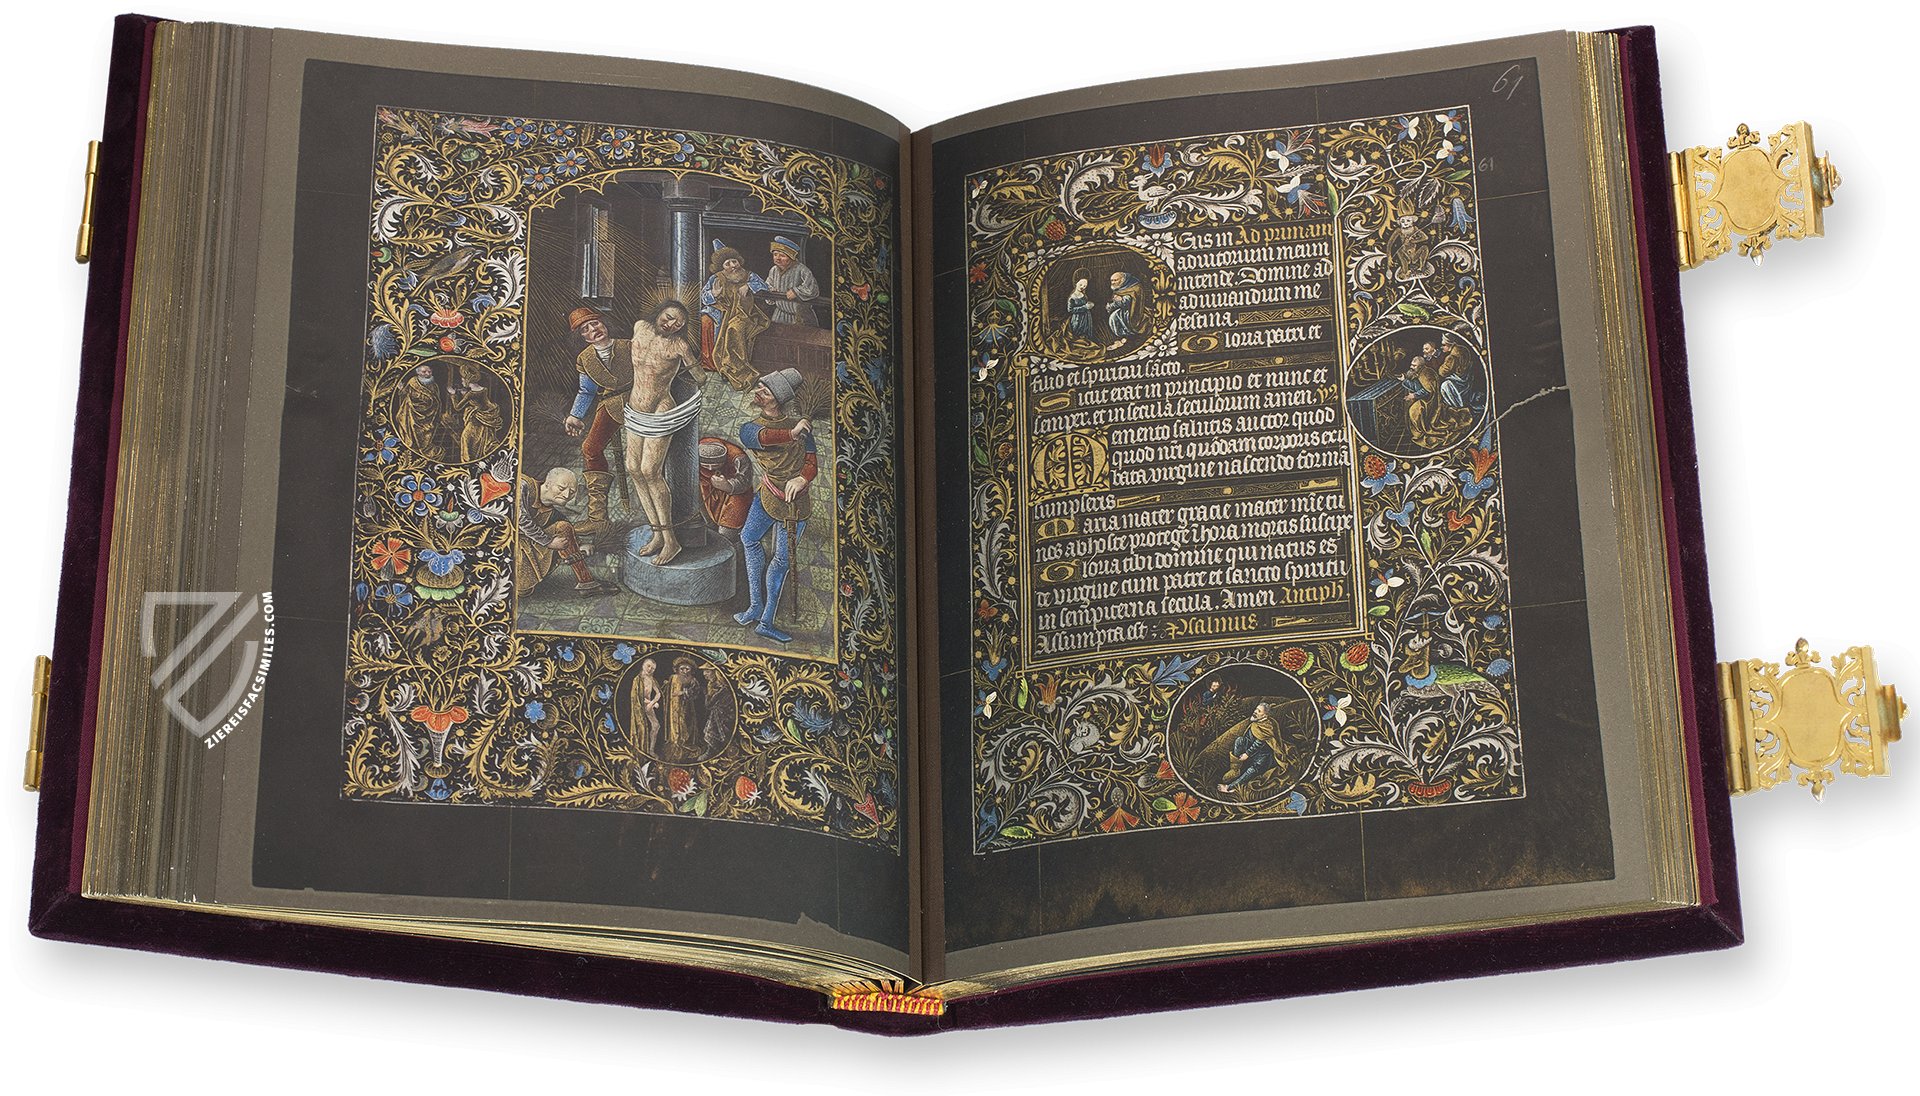 61
61
Eus in Ad primam
adiutorium meum
intende. Domine ad
adiuvandum me
festina.
Gloria patri et
filio et spiritui sc̄to.
Sicut erat in principio et nunc et
semper. et in secula seculorum amen. ym̄
Memento salutis auctor quod
quod nr̄i quōdam corporis ex il
bata virgine nascendo formā
sumpseris
Maria mater gracie mater mīe tu
nos ab hoste protege ī hora mortis suscipe
Gloria tibi domine qui natus es
de virgine cum patre et sancto spiritu
in sempiterna secula. Amen Antiph.
Assumpta est : Psalmus
ZIEREISFACSIMILES.COM